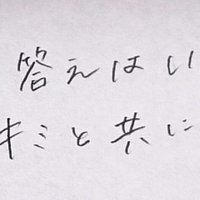 答えはい
キミと共に